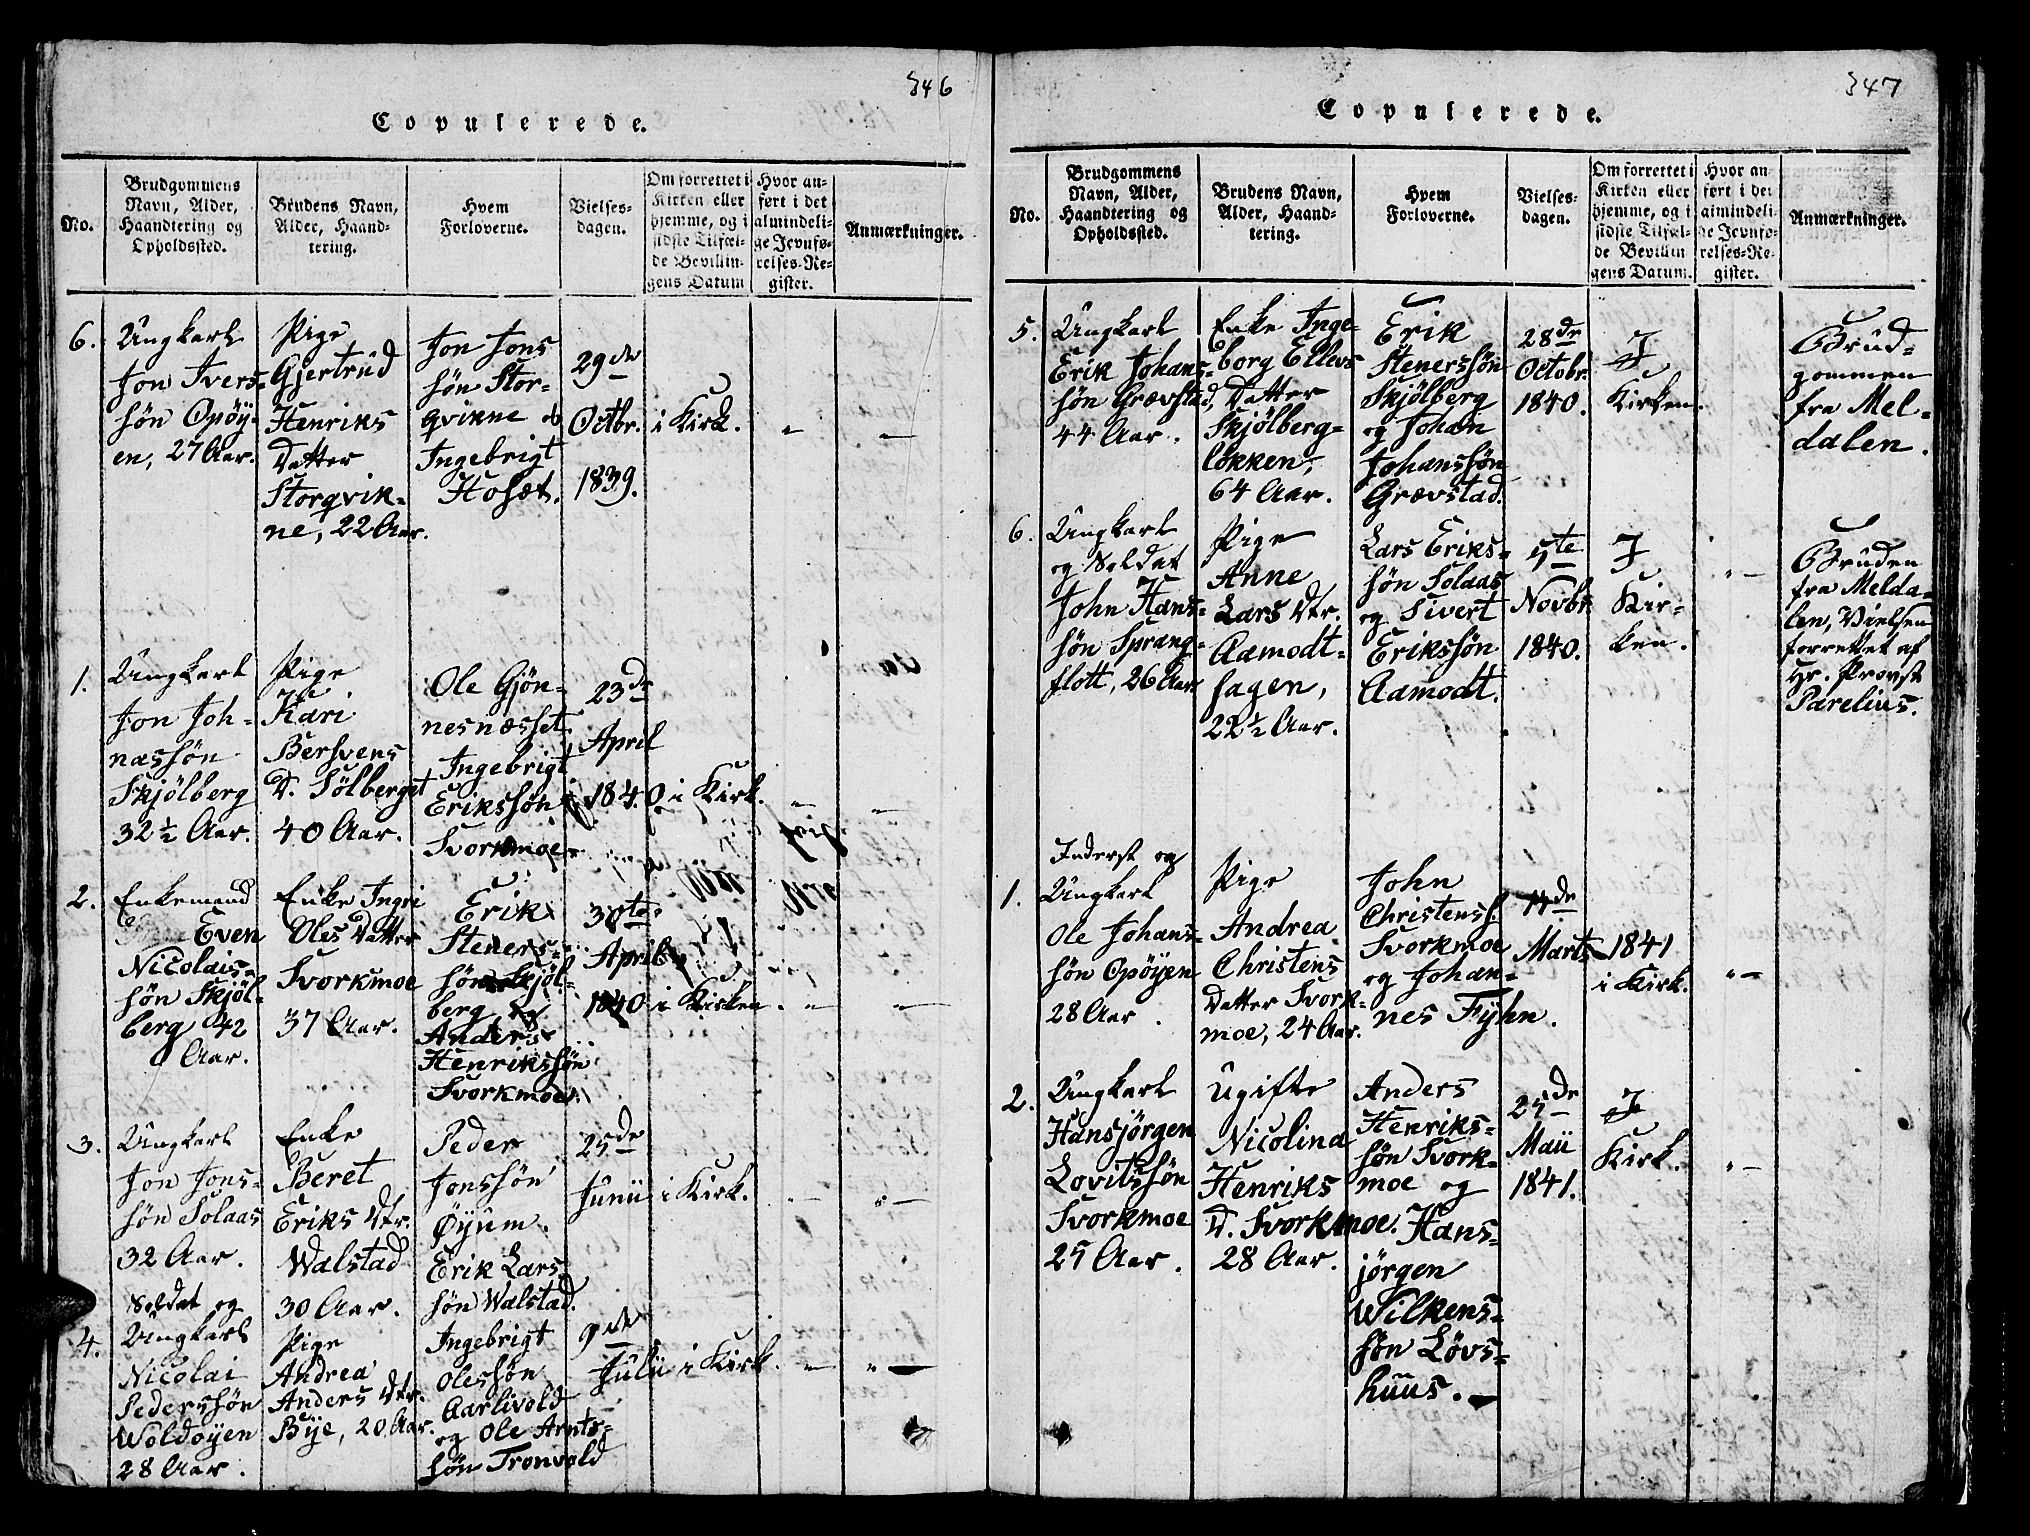 346
Copulerede.
No.
Brudgommens
Navn, Alder,
Haandtering og
Opholdssted.
Brudens Navn,
Alder, Haand-
tering.
Hvem
Forloverne.
Vielses-
dagen.
Om forrettet i
Kirken eller
hjemme, og i
sidste Tilfæl-
de Bevillin-
gens Datum
Hvor an-
ført i det
almindeli-
ge Jevnfø-
relses-Re-
gister.
Anmærkninger.
6.
Ungkarl
Jon Ivers-
søn Opøy-
en, 27 Aar.
Pige
Gjertrud
Henriks
Datter
Storqvik-
ne, 22 Aar.
Jon Jons
søn Stor-
qvikne og
Ingebrigt
Hosæt.
29de
Octbr.
1839.
i Kirk.
1.
Ungkarl
Jon Joh-
næssøn
Skjølberg
32½ Aar.
Pige
Kari
Bersvens
D. Sølberget
40 Aar.
Ole Gjøn-
nesnæsset
Ingebrigt
Erikssøn
Svorkmoe
23de
April
1840
i Kirk.
2.
Enkemand
Even
Nicolais-
søn Skjøl-
berg 42
Aar.
Enke Ingri
Oles Datter
Svorkmoe
37 Aar.
Erik
Steners-
søn Skjøl-
berg og
Anders
Henrikssøn
Svorkmoe
30te
April
1840
i Kirken
3.
Ungkarl
Jon Jons-
søn Solaas
32 Aar.
Enke
Beret
Eriks Dtr.
Walstad
30 Aar.
Peder
Jonssøn
Øyum.
Erik Lars
søn Walstad.
25de
Junii
i Kirk.
4.
Soldat og
Ungkarl
Nicolai
Pederssøn
Woldøyen
28 Aar.
Pige
Andrea
Anders Dtr.
Bye, 20 Aar.
Ingebrigt
Olessøn
Aarlivold
og Ole Arnts-
søn Tronvold
9de
Julii
i Kirk.
347
Copulerede.
No.
Brudgommens
Navn, Alder,
Haandtering og
Opholdssted.
Brudens Navn,
Alder, Haand-
tering.
Hvem
Forloverne.
Vielses-
dagen.
Om forrettet i
Kirken eller
hjemme, og i
sidste Tilfæl-
de Bevillin
gens Datum.
Hvor an-
ført i det
almindeli-
de Jevnfø-
relses-Re-
gister.
Anmærkninger.
5.
Ungkarl
Erik Johans-
søn Grævstad,
44 Aar.
Enke Inge-
borg Ellevs
Datter
Skjølberg-
løkken,
64 Aar.
Erik
Stenerssøn
Skjølberg
og Johan
Johanssøn
Grævstad.
28de
Octobr.
1840.
I
Kirken.
Brud-
gommen
fra Mel-
dalen.
6.
Ungkarl
og Soldat
John Hans-
søn Sprang-
flott, 26 Aar.
Pige
Anne
Lars Dtr.
Aamodt-
hagen,
22½ Aar.
Lars Eriks-
søn Solaas
og Sivert
Erikssøn
Aamodt.
5te
Novbr.
1840.
I
Kir-
ken.
Bruden
fra Melda-
len, Vielsen
forrettet af
Hr. Provst
Parelius.
1.
Inderst og
Ungkarl
Ole Johans-
søn Opøyen
28 Aar.
Pige
Andrea
Christens
Datter Svork-
moe, 24 Aar.
John
Christens.
Svorkmoe
og Johan-
nes Fyhn.
Marts 1841
i Kirk.
2.
Ungkarl
Hansjörgen
Lovitssøn
Svorkmoe
25 Aar.
Ugifte
Nicolina
Henriks
D. Svorkmoe.
28 Aar.
Anders
Henriks-
søn Svork-
moe og
Hans-
jörgen
Wilkens-
søn Løvs-
huus.
25de
Maii
1841.
I
Kirk.